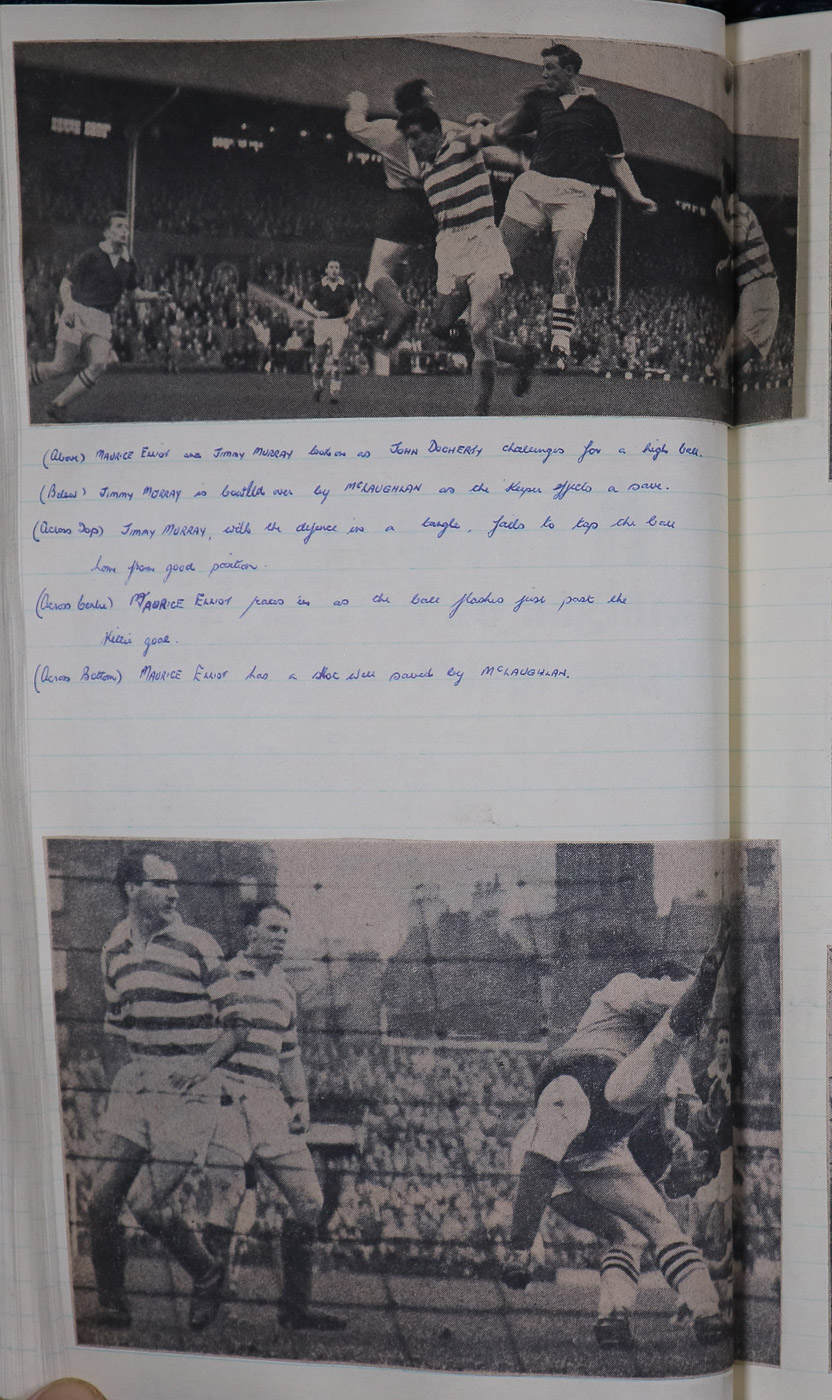 (Above) MAURICE ELLIOT and JIMMY MURRAY look on as JOHN DOCHERTY challenges for a high ball.
(Below) JIMMY MURRAY is bowlled over by McLAUGHLAN as the keeper effects a save.
(Across Top) JIMMY MURRAY, with the defence in a tangle, fails to tap the ball
home from good position.
(Across Centre) MAURICE ELLIOT races in as the ball flashes just past the
Killie goal.
(Across Bottom) MAURICE ELLIOT has a shot well saved by McLAUGHLAN.